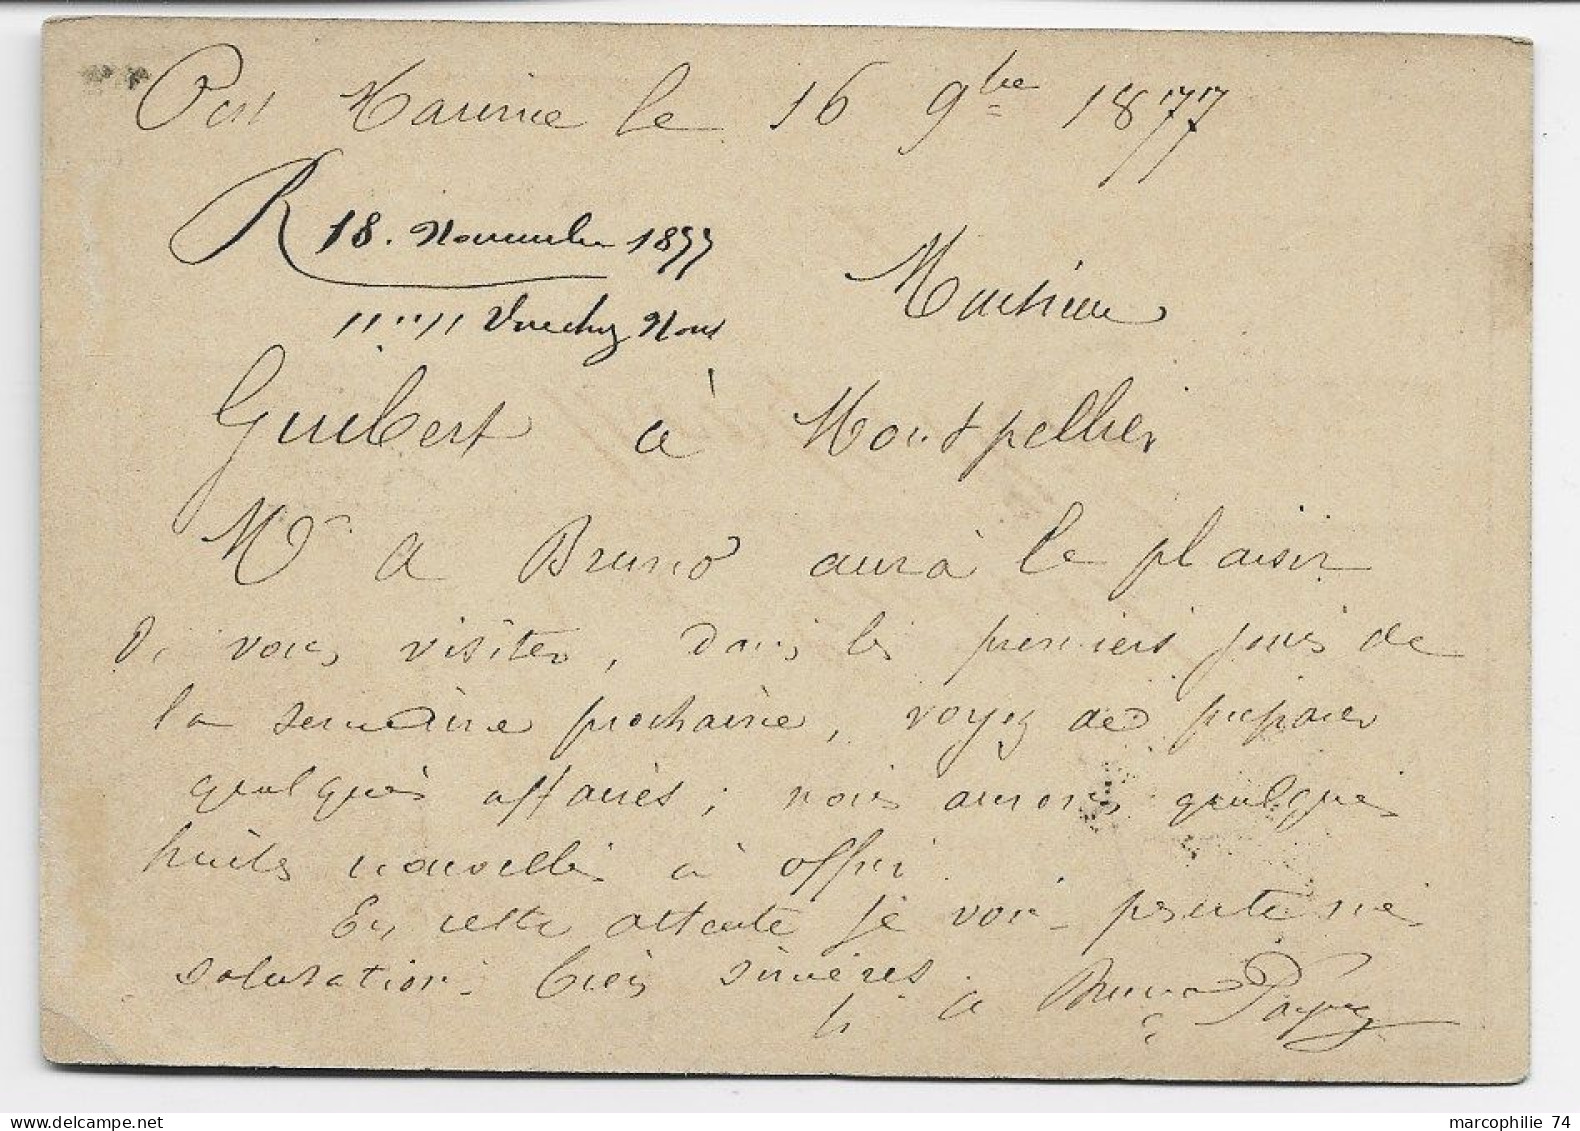 Port Marine le 16 9bre 1877
R 18. Novembre 1877
"" "" Vouchez Nous
Monsieur
Guibert à Montpellier
Mr A Bruno aura le plaisir
de vous visiter, dans les premiers jours de
la semaine prochaine, voyez de preparer
quelques affaires ; nous aurons quelques
huiles nouvelles à offrir.
En cette attente je vous presente mes
salutations bien sincères.
A Bruno
marcophilie 74